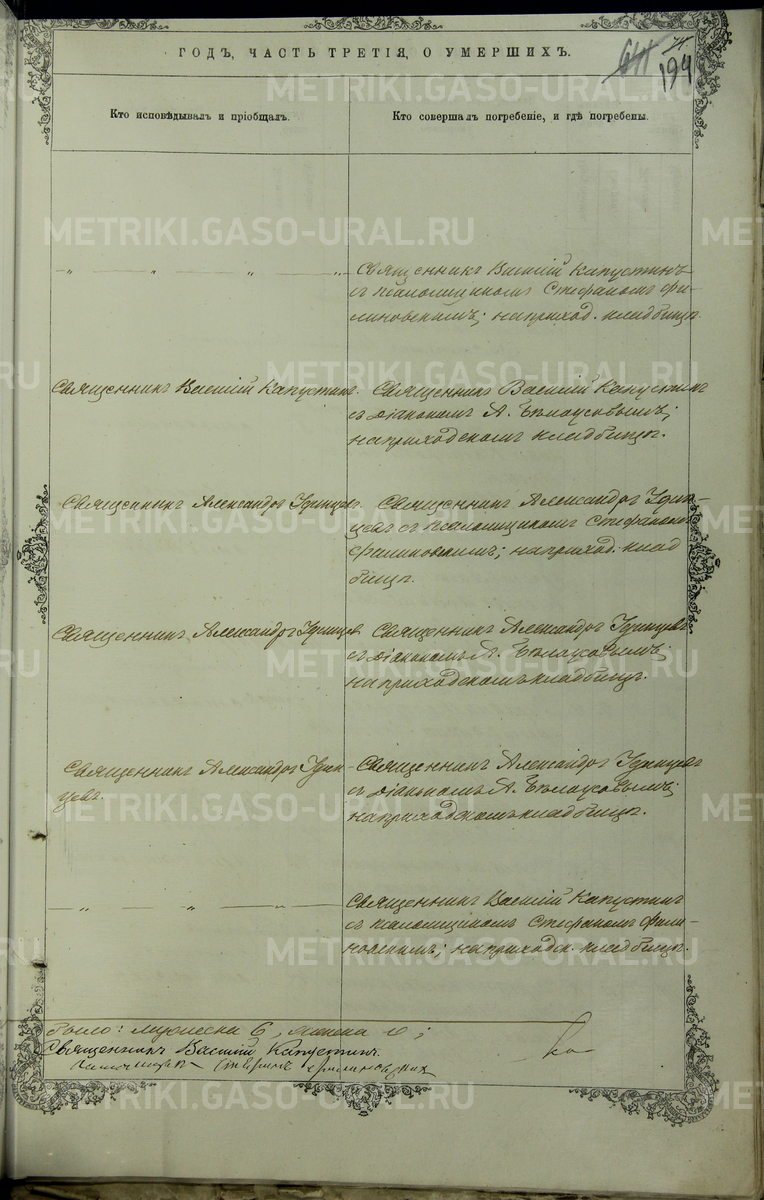 ГОДЪ, ЧАСТЬ ТРЕТІЯ, О УМЕРШИХЪ.
194
Кто исповѣдывалъ и пріобщалъ.
Кто совершалъ погребеніе, и гдѣ погребены.
METRIKI.GASO-URAL.RU
Священникъ Василій Капустинъ
съ псаломщикомъ Стефаномъ Фи-
линовскимъ; на приход. кладбищѣ.
Священникъ Василій Капустинъ.
Священникъ Василій Капустинъ
съ діакономъ А. Бѣлоусовымъ;
на приходскомъ кладбищѣ.
Священникъ Александръ Удинцевъ.
Священникъ Александръ Удин-
цевъ съ псаломщикомъ Стефаномъ
Филиновскимъ; на приход. клад
бищѣ.
Священникъ Александръ Удинцев
Священникъ Александръ Удинцевъ
съ діакономъ А. Бѣлоусовымъ;
на приходскомъ кладбищѣ.
Священникъ Александръ Удин-
цевъ.
Священникъ Александръ Удинцевъ
съ діакономъ А. Бѣлоусовымъ;
на приходскомъ кладбищѣ.
Священникъ Василій Капустинъ
съ псаломщикомъ Стефаномъ Фили-
новскимъ; на приходск. кладбищѣ.
Священникъ Василій Капустинъ.